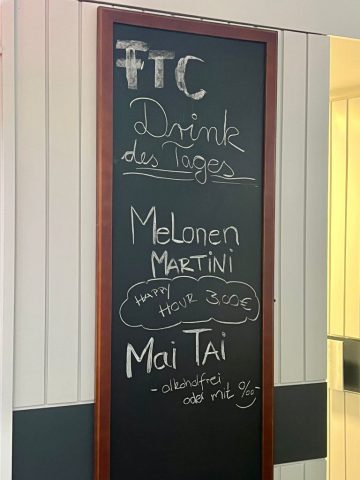 FTC
Drink
des Tages
Melonen
MARTiNi
HAPPY
HOUR 3,00€
Mai TAi
- alkoholfrei
oder mit % -